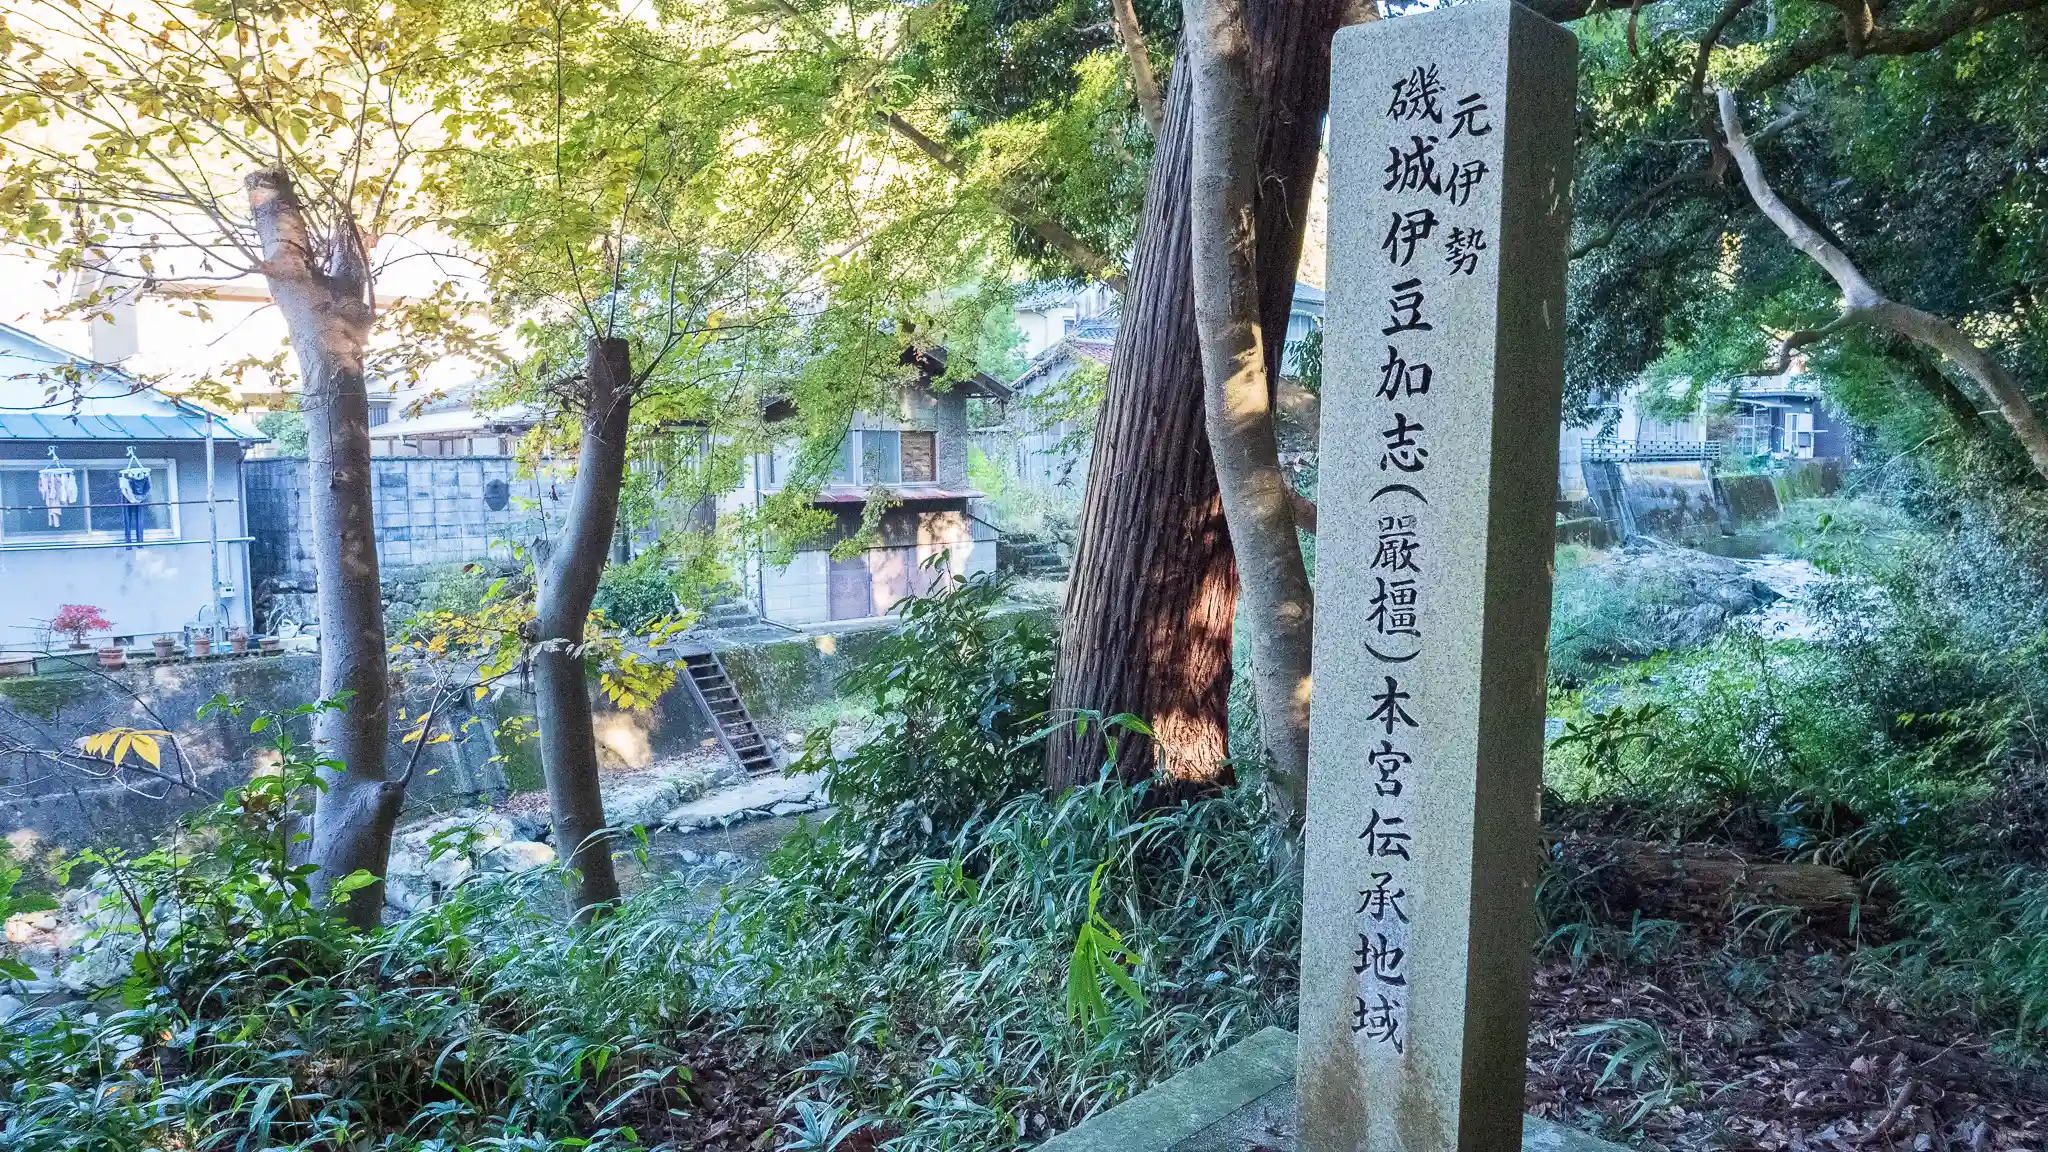 元伊勢
磯城伊豆加志(嚴橿)本宮伝承地域